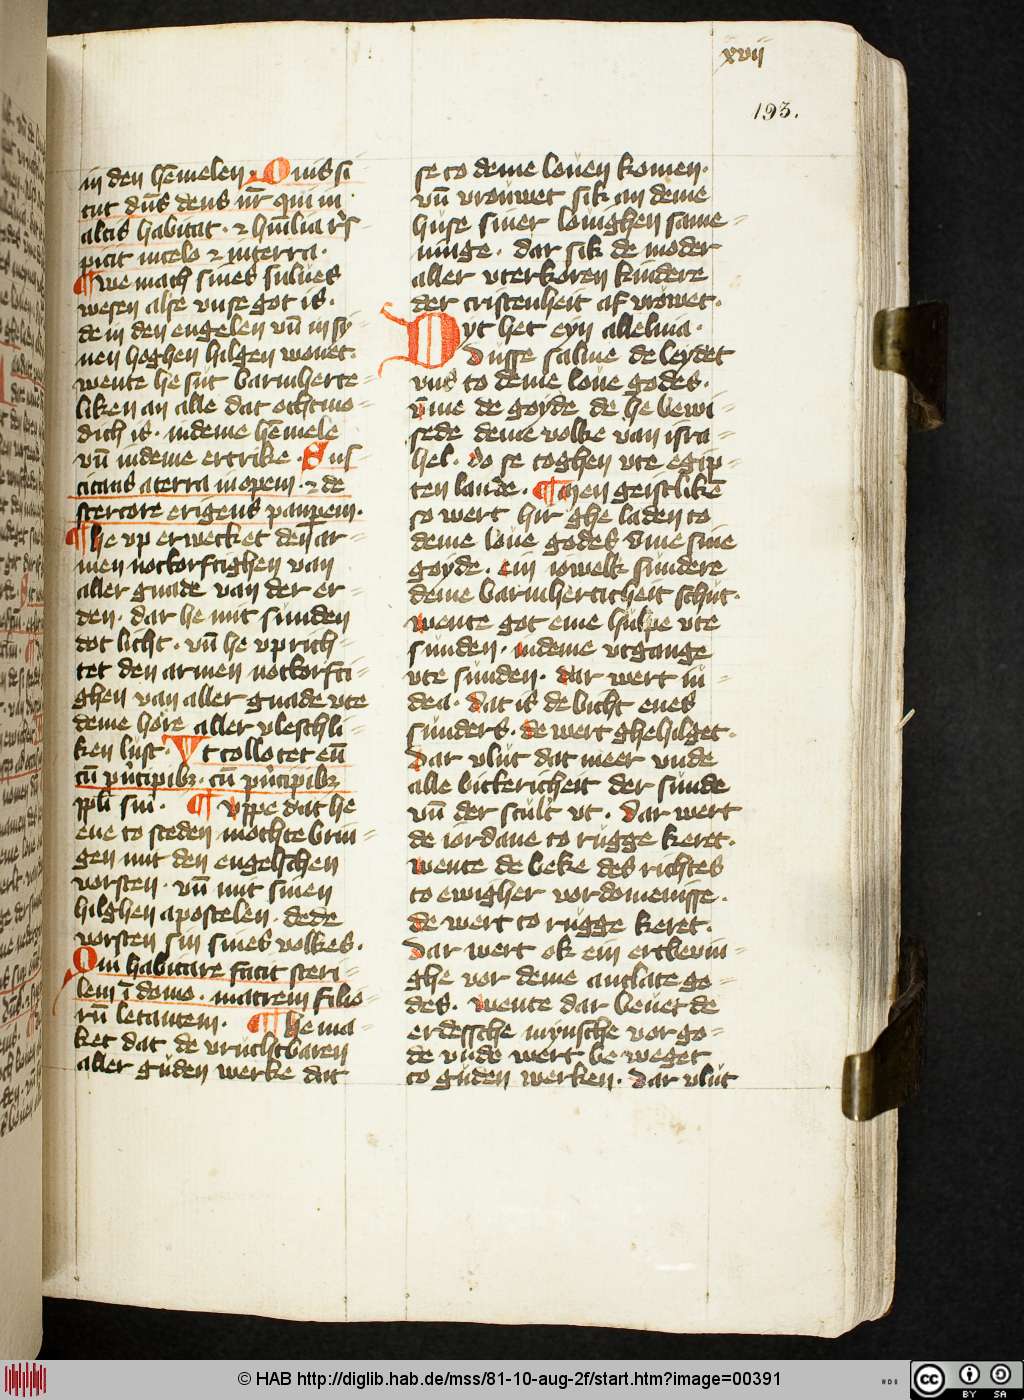 xvij
193.
in den hēmelen · Quis si
cut dn̄s deus nr̄ qui in
altis habitat · ⁊ hūilia rͤs
picit in celo ⁊ in terra ·
¶ we mach sines sulues
wesen alse vnse got is ·
de in den engelen vn̄ in sy
nen hoghen hilgen wonet·
wente he sut barmherte=
liken an alle dat othmo=
dich is · in deme hēmele
vn̄ in deme ertrike · Sus
citans a terra inopem · ⁊ de
stercore erigens pauperem ·
¶ he vp erwecket den ar=
men notborftighen van
aller gnade van der er=
den · dar he mit sunden
dot licht · vn̄ he vprich=
tet den armen notborfti=
ghen van aller gnade vte
deme hore aller vleschli=
ken lust · Vt collocet eū
cū pͥncipibꝫ · cū pͥncipibꝫ
ppli sui · ¶ vppe dat he
ene to steden mochte brin=
gen mit den engelschen
vorsten · vn̄ mit sinen
hilghen apostelen · dede
vorsten sin sines volkes ·
Qui habitare facit steri=
lem ī domo · matrem filio=
rū letantem · ¶ he ma=
ket dat de vruchtbaren
aller guden werke dat
se to deme louen komen ·
vn̄ vrouwet sik an deme
huse siner louighen same=
ninge · dar sik de moder
aller vterkoren kindere
der cristenheit af vrowet ·
Dyt het eyn alleluia ·
dusse salme de leydet
vns to deme loue godes ·
vmme de goyde de he bewi=
sede deme volke van isra=
hel · do se toghen vte egip=
ten lande · ¶ Men geistlikē
so wert hir ghe laden to
deme loue godes vme sine
goyde · ein iowelk sundere
deme barmherticheit schut ·
wente got eme hulpe vte
sunden · in deme vtgange
vte sunden · dar wert iu=
dea · dat is de bicht enes
sunders · de wert ghehilget ·
dar vlut dat meer vnde
alle bittericheit der sunde
vn̄ der scult vt · dar wert
de iordane to rugge keret ·
wente de beke des richtes
to ewigher vordomenisse ·
de wert to rugge keret ·
dar wert ok ein ertbeuin=
ghe vor deme antlate go=
des · wente dar beuet de
erdessche mynsche vor go=
de vnde wert be weget
to guden werken · dar vlut
© HAB http://diglib.hab.de/mss/81-10-aug-2f/start.htm?image=00391
HAB
cc
BY SA